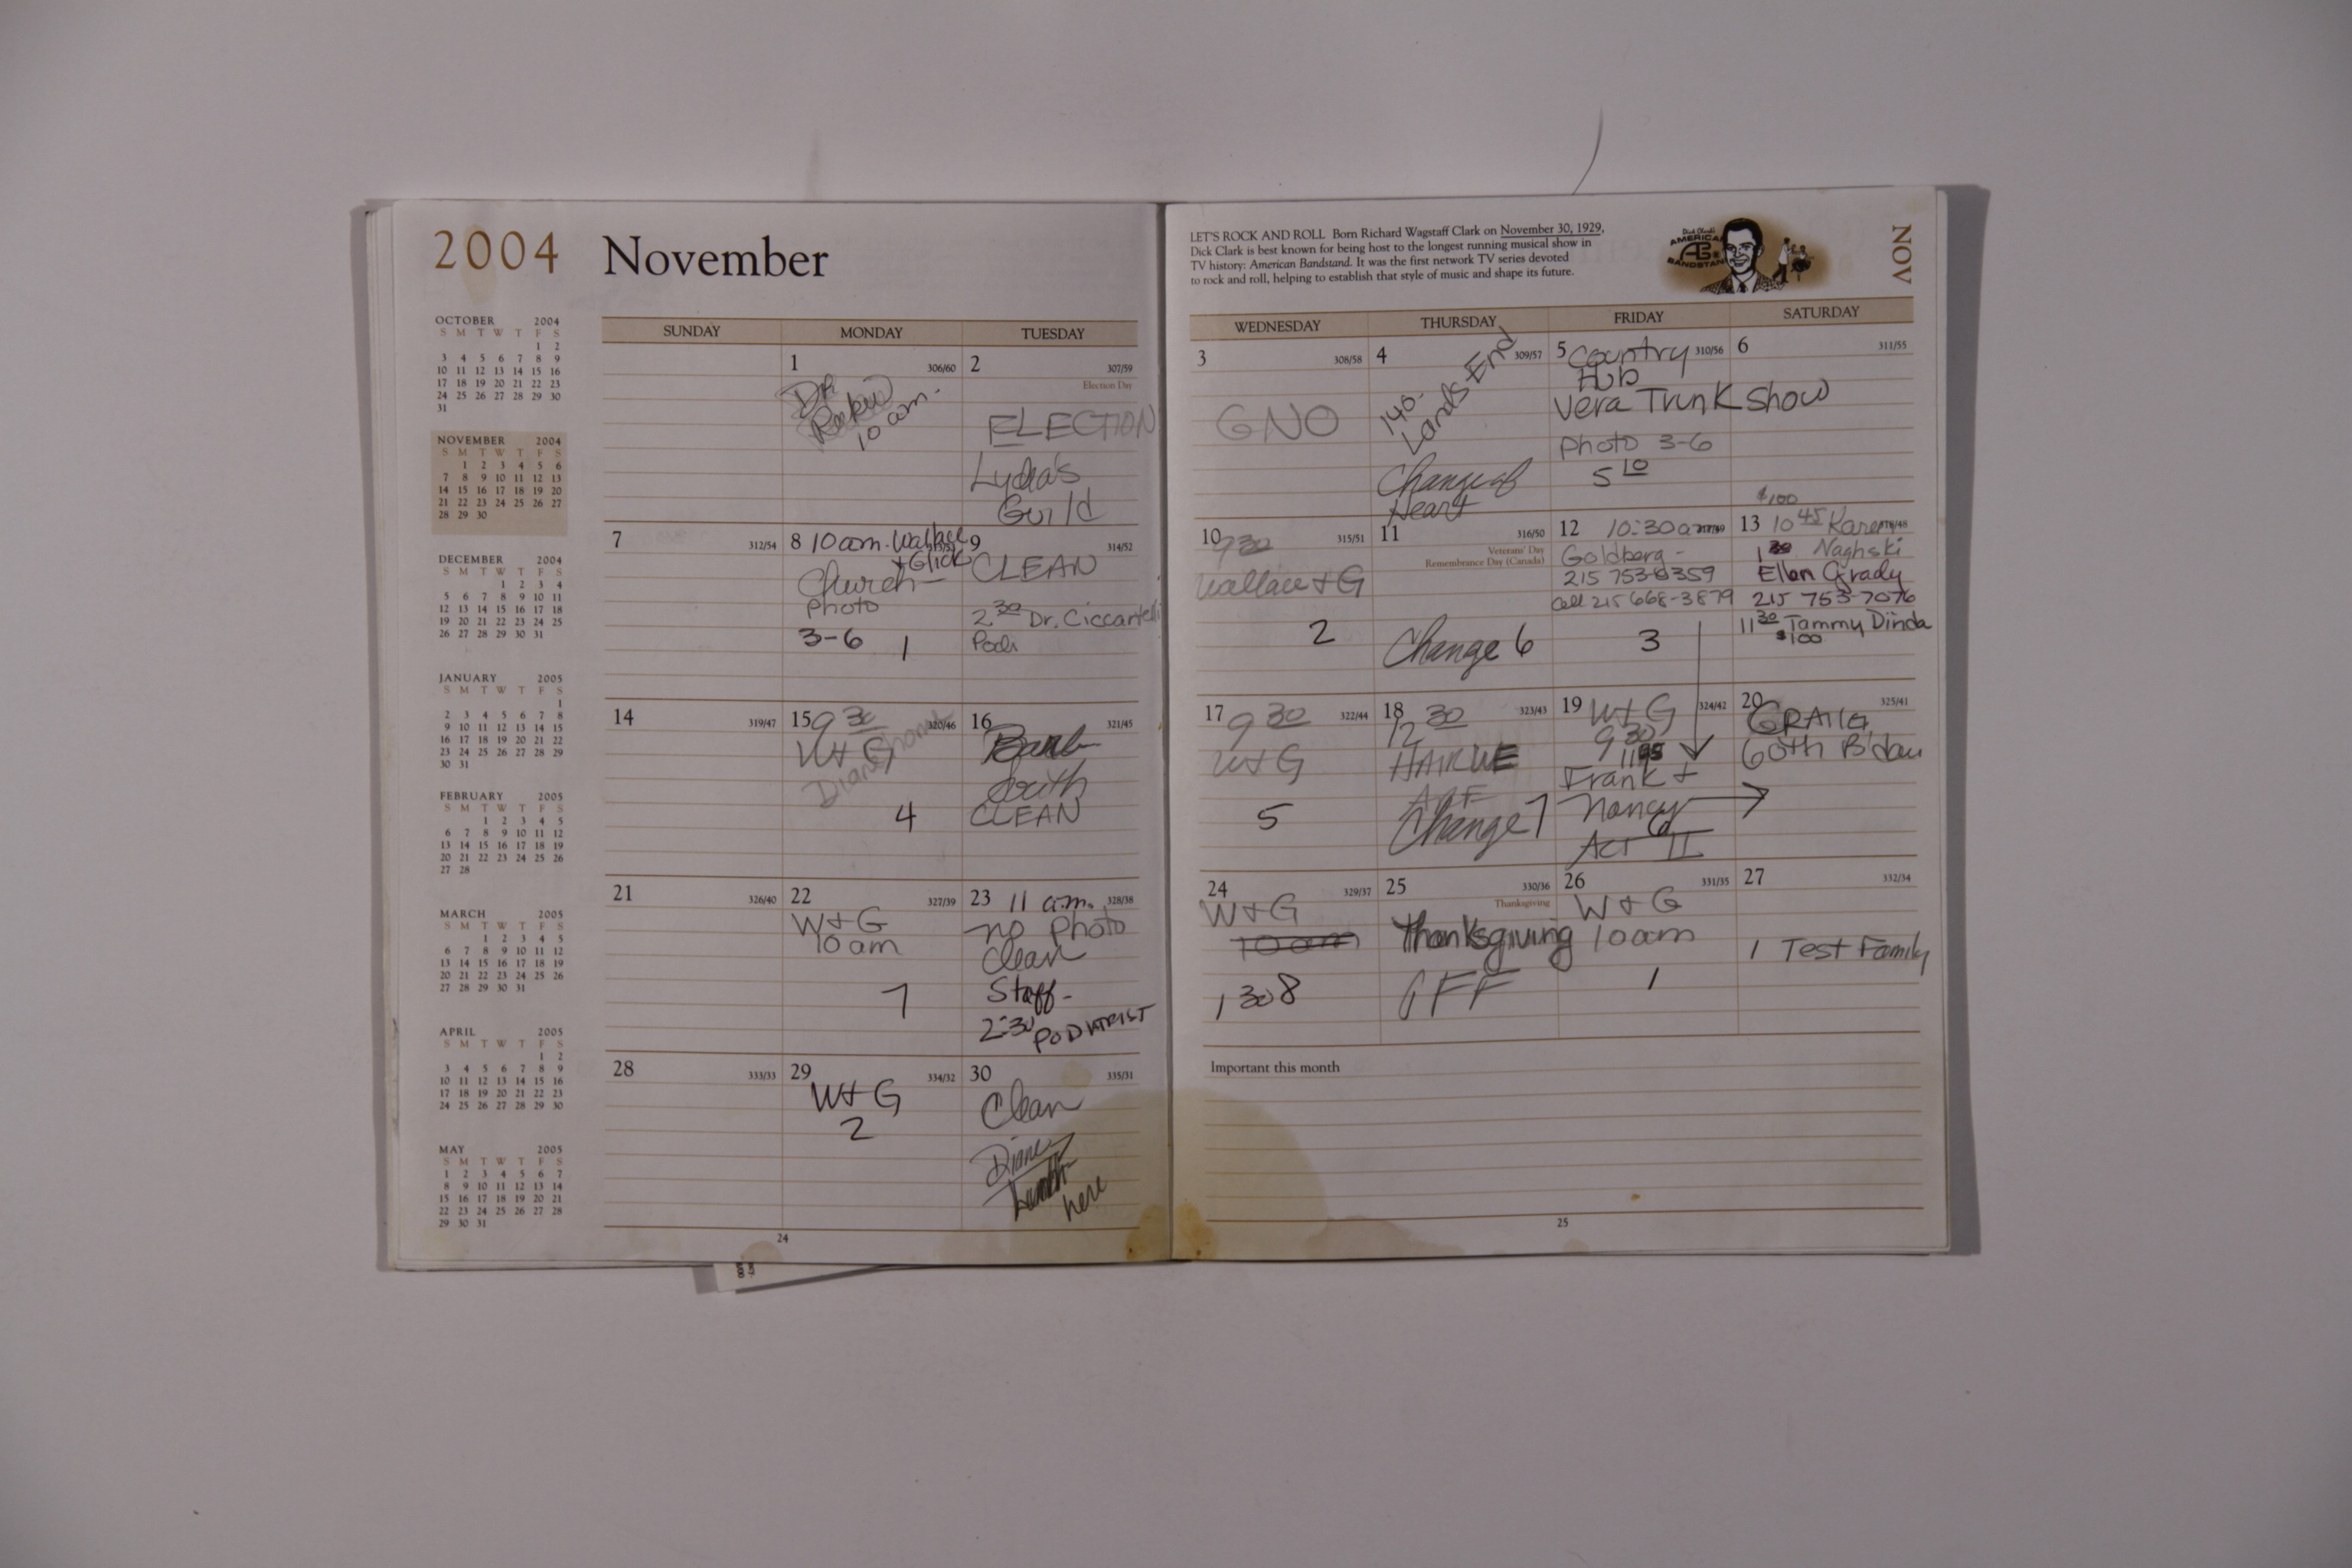 2004 November
OCTOBER 2004
S M T W T F S
1 2
3 4 5 6 7 8 9
10 11 12 13 14 15 16
17 18 19 20 21 22 23
24 25 26 27 28 29 30
31
NOVEMBER 2004
S M T W T F S
1 2 3 4 5 6
7 8 9 10 11 12 13
14 15 16 17 18 19 20
21 22 23 24 25 26 27
28 29 30
DECEMBER 2004
S M T W T F S
1 2 3 4
5 6 7 8 9 10 11
12 13 14 15 16 17 18
19 20 21 22 23 24 25
26 27 28 29 30 31
JANUARY 2005
S M T W T F S
1
2 3 4 5 6 7 8
9 10 11 12 13 14 15
16 17 18 19 20 21 22
23 24 25 26 27 28 29
30 31
FEBRUARY 2005
S M T W T F S
1 2 3 4 5
6 7 8 9 10 11 12
13 14 15 16 17 18 19
20 21 22 23 24 25 26
27 28
MARCH 2005
S M T W T F S
1 2 3 4 5
6 7 8 9 10 11 12
13 14 15 16 17 18 19
20 21 22 23 24 25 26
27 28 29 30 31
APRIL 2005
S M T W T F S
1 2
3 4 5 6 7 8 9
10 11 12 13 14 15 16
17 18 19 20 21 22 23
24 25 26 27 28 29 30
MAY 2005
S M T W T F S
1 2 3 4 5 6 7
8 9 10 11 12 13 14
15 16 17 18 19 20 21
22 23 24 25 26 27 28
29 30 31
SUNDAY MONDAY TUESDAY
1 306/60
DR
10 am.
2 307/59
Election Day
ELECTION
Lydia's
Guild
7 312/54
8 10 am. Wallace
+ Glick
Church
Photo
3-6 1
9 314/52
CLEAN
2 30 Dr. Ciccantelli
Podi
14 319/47
15 9 30 320/46
W+G
Diane home
4
16 321/45
CLEAN
21 326/40
22 327/39
W+G
10 am
7
23 11 a.m. 328/38
no Photo
clean
Staff-
2:30 PODIATRIST
28 333/33
29 334/32
W+G
2
30 335/31
Clean
Diane
Lunch
here
24
LET'S ROCK AND ROLL Born Richard Wagstaff Clark on November 30, 1929,
Dick Clark is best known for being host to the longest running musical show in
TV history: American Bandstand. It was the first network TV series devoted
to rock and roll, helping to establish that style of music and shape its future.
Dick Clark's
AMERICAN
AB
BANDSTAND
NOV
WEDNESDAY THURSDAY FRIDAY SATURDAY
3 308/58
GNO
4 309/57
140-
Lands End
Change of
Heart
5 Country 310/56
Hub
Vera Trunk Show
Photo 3-6
5 10
6 311/55
$100
10 9 30 315/51
Wallace + G
2
11 316/50
Veterans' Day
Remembrance Day (Canada)
Change 6
12 10:30 am
Goldberg -
215 753-8359
Cell 215 668-3879
3
13 10 45 Karen
1 30 Naghski
Ellen Grady
215 753-7076
11 30 Tammy Dinda
$100
17 9 30 322/44
W+G
5
18 323/43
12 30
Change 7
19 W+G 324/42
9 30
Frank +
Nancy
6
Act II
20 325/41
CRAIG
60th B'day
24 329/37
W+G
10 am
1 30 8
25 330/36
Thanksgiving
Thanksgiving
OFF
26 331/35
W+G
10 am
1
27 332/34
1 Test Family
Important this month
25